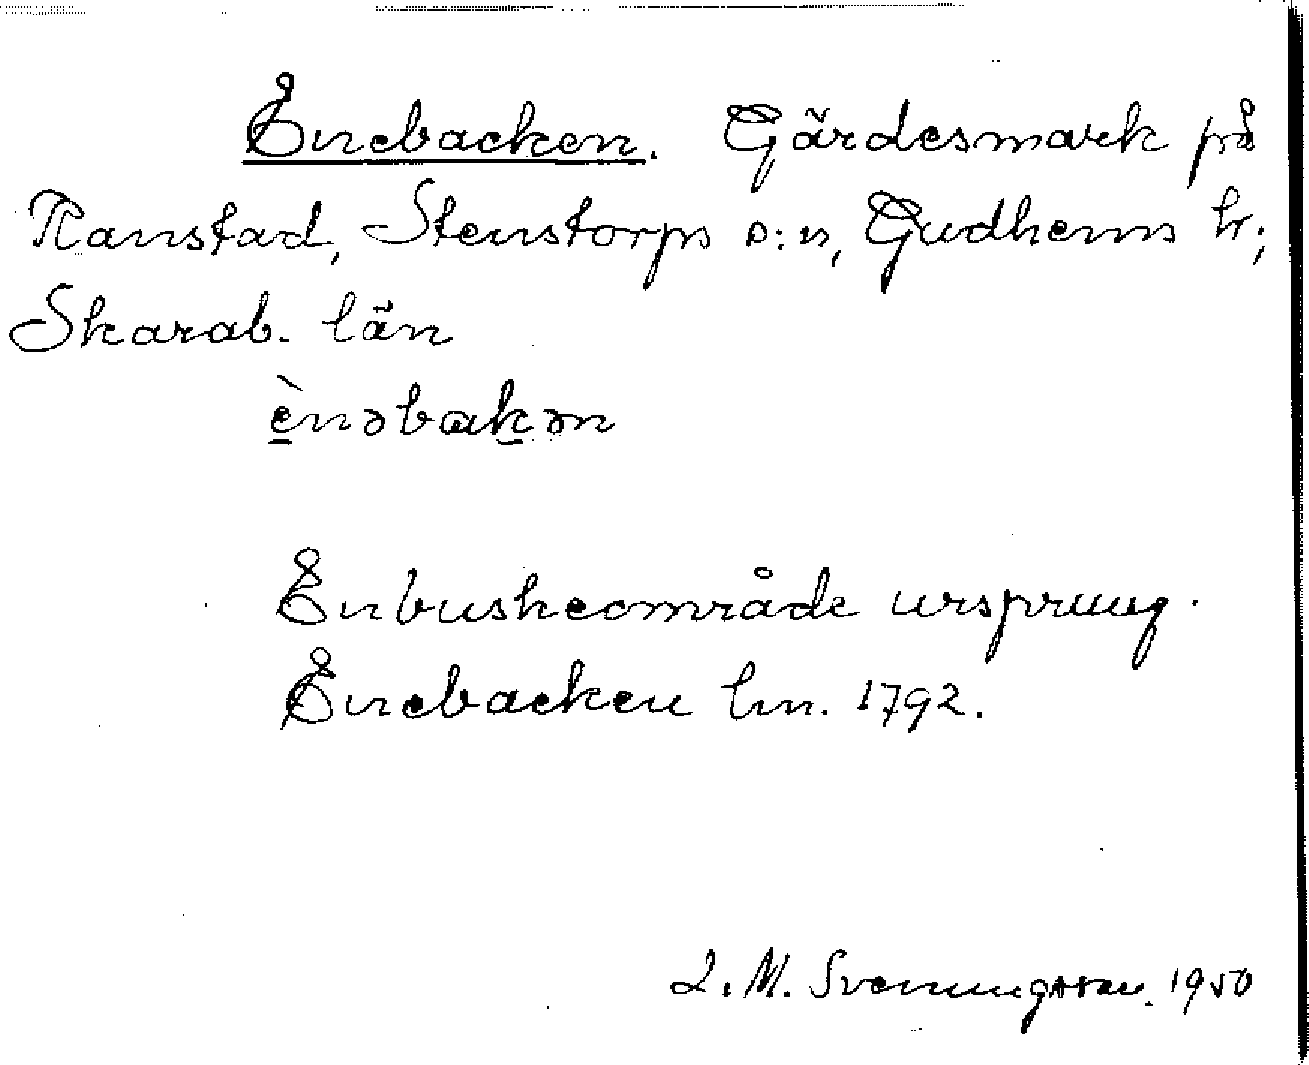 Enebacken. Gärdesmark på
Ranstad, Stenstorps s:n, Gudhems hr;
Skarab. län
ènəbakən
Enbuskeområde ursprung.
Enebacken lm. 1792.
L. M. Svenungsson. 1950